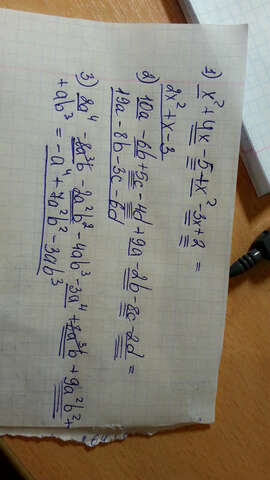 1) x² + 4x - 5 + x² - 3x + 2 =
2x² + x - 3
2) 10a - 6b + 5c - 4d + 9a - 2b - 8c - 2d =
19a - 8b - 3c - 6d
3) 2a⁴ - 8a³b - 2a²b² - 4ab³ - 3a⁴ + 8a³b + 9a²b² +
+ ab³ = -a⁴ + 7a²b² - 3ab³